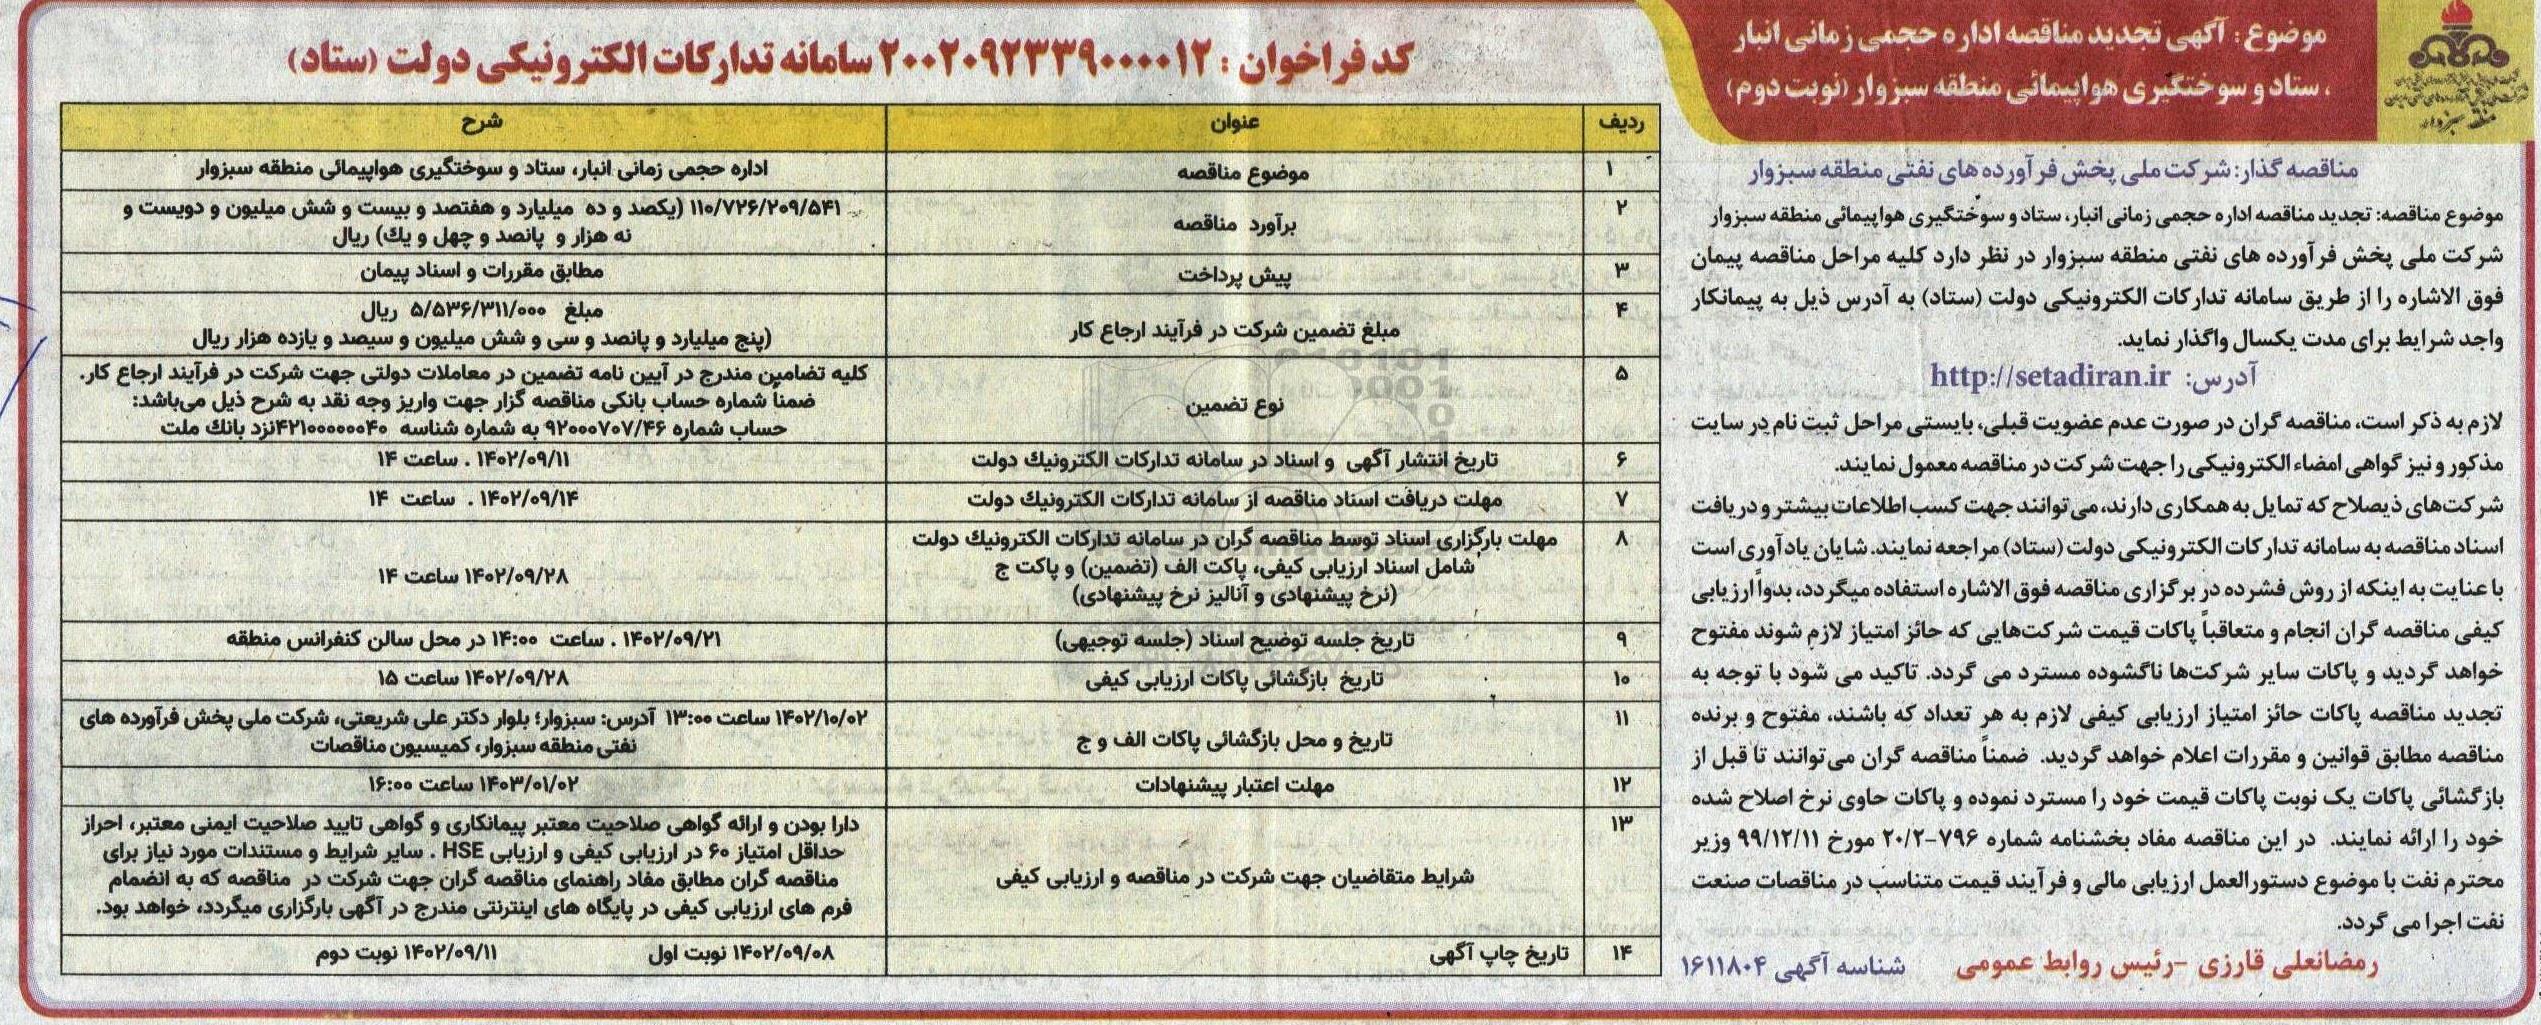 موضوع: آگهی تجدید مناقصه اداره حجمی زمانی انبار
، ستاد و سوختگیری هواپیمائی منطقه سبزوار (نوبت دوم)
منطقه سبزوار
مناقصه گذار: شرکت ملی پخش فرآورده های نفتی منطقه سبزوار
موضوع مناقصه: تجدید مناقصه اداره حجمی زمانی انبار، ستاد و سوختگیری هواپیمائی منطقه سبزوار
شرکت ملی پخش فرآورده های نفتی منطقه سبزوار در نظر دارد کلیه مراحل مناقصه پیمان
فوق الاشاره را از طریق سامانه تدارکات الکترونیکی دولت (ستاد) به آدرس ذیل به پیمانکار
واجد شرایط برای مدت یکسال واگذار نماید.
آدرس: http://setadiran.ir
لازم به ذکر است، مناقصه گران در صورت عدم عضویت قبلی، بایستی مراحل ثبت نام در سایت
مذکور و نیز گواهی امضاء الکترونیکی را جهت شرکت در مناقصه معمول نمایند.
شرکت‌های ذیصلاح که تمایل به همکاری دارند، می‌توانند جهت کسب اطلاعات بیشتر و دریافت
اسناد مناقصه به سامانه تدارکات الکترونیکی دولت (ستاد) مراجعه نمایند. شایان یادآوری است
با عنایت به اینکه از روش فشرده در برگزاری مناقصه فوق الاشاره استفاده میگردد، بدواً ارزیابی
کیفی مناقصه گران انجام و متعاقباً پاکات قیمت شرکت‌هایی که حائز امتیاز لازم شوند مفتوح
خواهد گردید و پاکات سایر شرکت‌ها ناگشوده مسترد می گردد. تاکید می شود با توجه به
تجدید مناقصه پاکات حائز امتیاز ارزیابی کیفی لازم به هر تعداد که باشند، مفتوح و برنده
مناقصه مطابق قوانین و مقررات اعلام خواهد گردید. ضمناً مناقصه گران می‌توانند تا قبل از
بازگشائی پاکات یک نوبت پاکات قیمت خود را مسترد نموده و پاکات حاوی نرخ اصلاح شده
خود را ارائه نمایند. در این مناقصه مفاد بخشنامه شماره ۷۹۶-۲۰/۲ مورخ ۹۹/۱۲/۱۱ وزیر
محترم نفت با موضوع دستورالعمل ارزیابی مالی و فرآیند قیمت متناسب در مناقصات صنعت
نفت اجرا می گردد.
رمضانعلی قارزی -رئیس روابط عمومی شناسه آگهی ۱۶۱۱۸۰۴
کد فراخوان : ۲۰۰۲۰۹۲۳۳۹۰۰۰۰۱۲ سامانه تدارکات الکترونیکی دولت (ستاد)
ردیف عنوان شرح
۱ موضوع مناقصه اداره حجمی زمانی انبار، ستاد و سوختگیری هواپیمائی منطقه سبزوار
۲ برآورد مناقصه ۱۱۰/۷۲۶/۲۰۹/۵۴۱ (یکصد و ده میلیارد و هفتصد و بیست و شش میلیون و دویست و
نه هزار و پانصد و چهل و یك) ریال
۳ پیش پرداخت مطابق مقررات و اسناد پیمان
۴ مبلغ تضمین شرکت در فرآیند ارجاع کار مبلغ ۵/۵۳۶/۳۱۱/۰۰۰ ریال
(پنج میلیارد و پانصد و سی و شش میلیون و سیصد و یازده هزار ریال
۵ نوع تضمین کلیه تضامین مندرج در آیین نامه تضمین در معاملات دولتی جهت شرکت در فرآیند ارجاع کار.
ضمناً شماره حساب بانکی مناقصه گزار جهت واریز وجه نقد به شرح ذیل می‌باشد:
حساب شماره ۹۲۰۰۰۷۰۷/۴۶ به شماره شناسه ۴۲۱۰۰۰۰۰۰۴۰نزد بانك ملت
۶ تاریخ انتشار آگهی و اسناد در سامانه تدارکات الکترونیك دولت ۱۴۰۲/۰۹/۱۱ . ساعت ۱۴
۷ مهلت دریافت اسناد مناقصه از سامانه تدارکات الکترونیك دولت ۱۴۰۲/۰۹/۱۴ . ساعت ۱۴
۸ مهلت بارگزاری اسناد توسط مناقصه گران در سامانه تدارکات الکترونیك دولت
شامل اسناد ارزیابی کیفی، پاکت الف (تضمین) و پاکت ج
(نرخ پیشنهادی و آنالیز نرخ پیشنهادی) ۱۴۰۲/۰۹/۲۸ ساعت ۱۴
۹ تاریخ جلسه توضیح اسناد (جلسه توجیهی) ۱۴۰۲/۰۹/۲۱ . ساعت ۱۴:۰۰ در محل سالن کنفرانس منطقه
۱۰ تاریخ بازگشائی پاکات ارزیابی کیفی ۱۴۰۲/۰۹/۲۸ ساعت ۱۵
۱۱ تاریخ و محل بازگشائی پاکات الف و ج ۱۴۰۲/۱۰/۰۲ ساعت ۱۳:۰۰ آدرس: سبزوار؛ بلوار دکتر علی شریعتی، شرکت ملی پخش فرآورده های
نفتی منطقه سبزوار، کمیسیون مناقصات
۱۲ مهلت اعتبار پیشنهادات ۱۴۰۳/۰۱/۰۲ ساعت ۱۶:۰۰
۱۳ شرایط متقاضیان جهت شرکت در مناقصه و ارزیابی کیفی دارا بودن و ارائه گواهی صلاحیت معتبر پیمانکاری و گواهی تایید صلاحیت ایمنی معتبر، احراز
حداقل امتیاز ۶۰ در ارزیابی کیفی و ارزیابی HSE . سایر شرایط و مستندات مورد نیاز برای
مناقصه گران مطابق مفاد راهنمای مناقصه گران جهت شرکت در مناقصه که به انضمام
فرم های ارزیابی کیفی در پایگاه های اینترنتی مندرج در آگهی بارگزاری میگردد، خواهد بود.
۱۴ تاریخ چاپ آگهی ۱۴۰۲/۰۹/۰۸ نوبت اول ۱۴۰۲/۰۹/۱۱ نوبت دوم